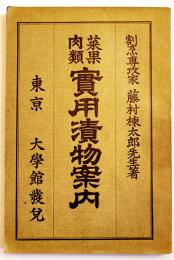 割烹専攻家 藤村棟太郎先生著
菜果
肉類
實用漬物案内
東京 大學館發兌